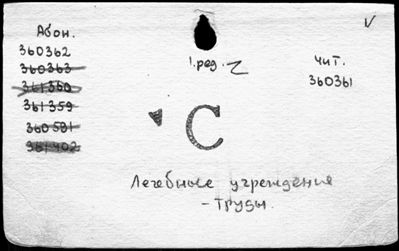 Абон.
360362
360363
361360
361359
360591
361402
1.ред.
Чит.
360361
С
Лечебные учреждения
- Труды.